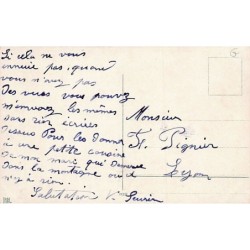 Si cela ne vous
ennuie pas, quand
vous n'avez pas
Des vues vous pouvez
m'envoyez les mêmes
Dans rien écrires
Dessus Pour les donner
à une petite cousine
De mon mari qui Demeure
Dans la montagne ou il
n'y à rien.
Salutation V.
Monsieur
Fr. Pignier
Lyon